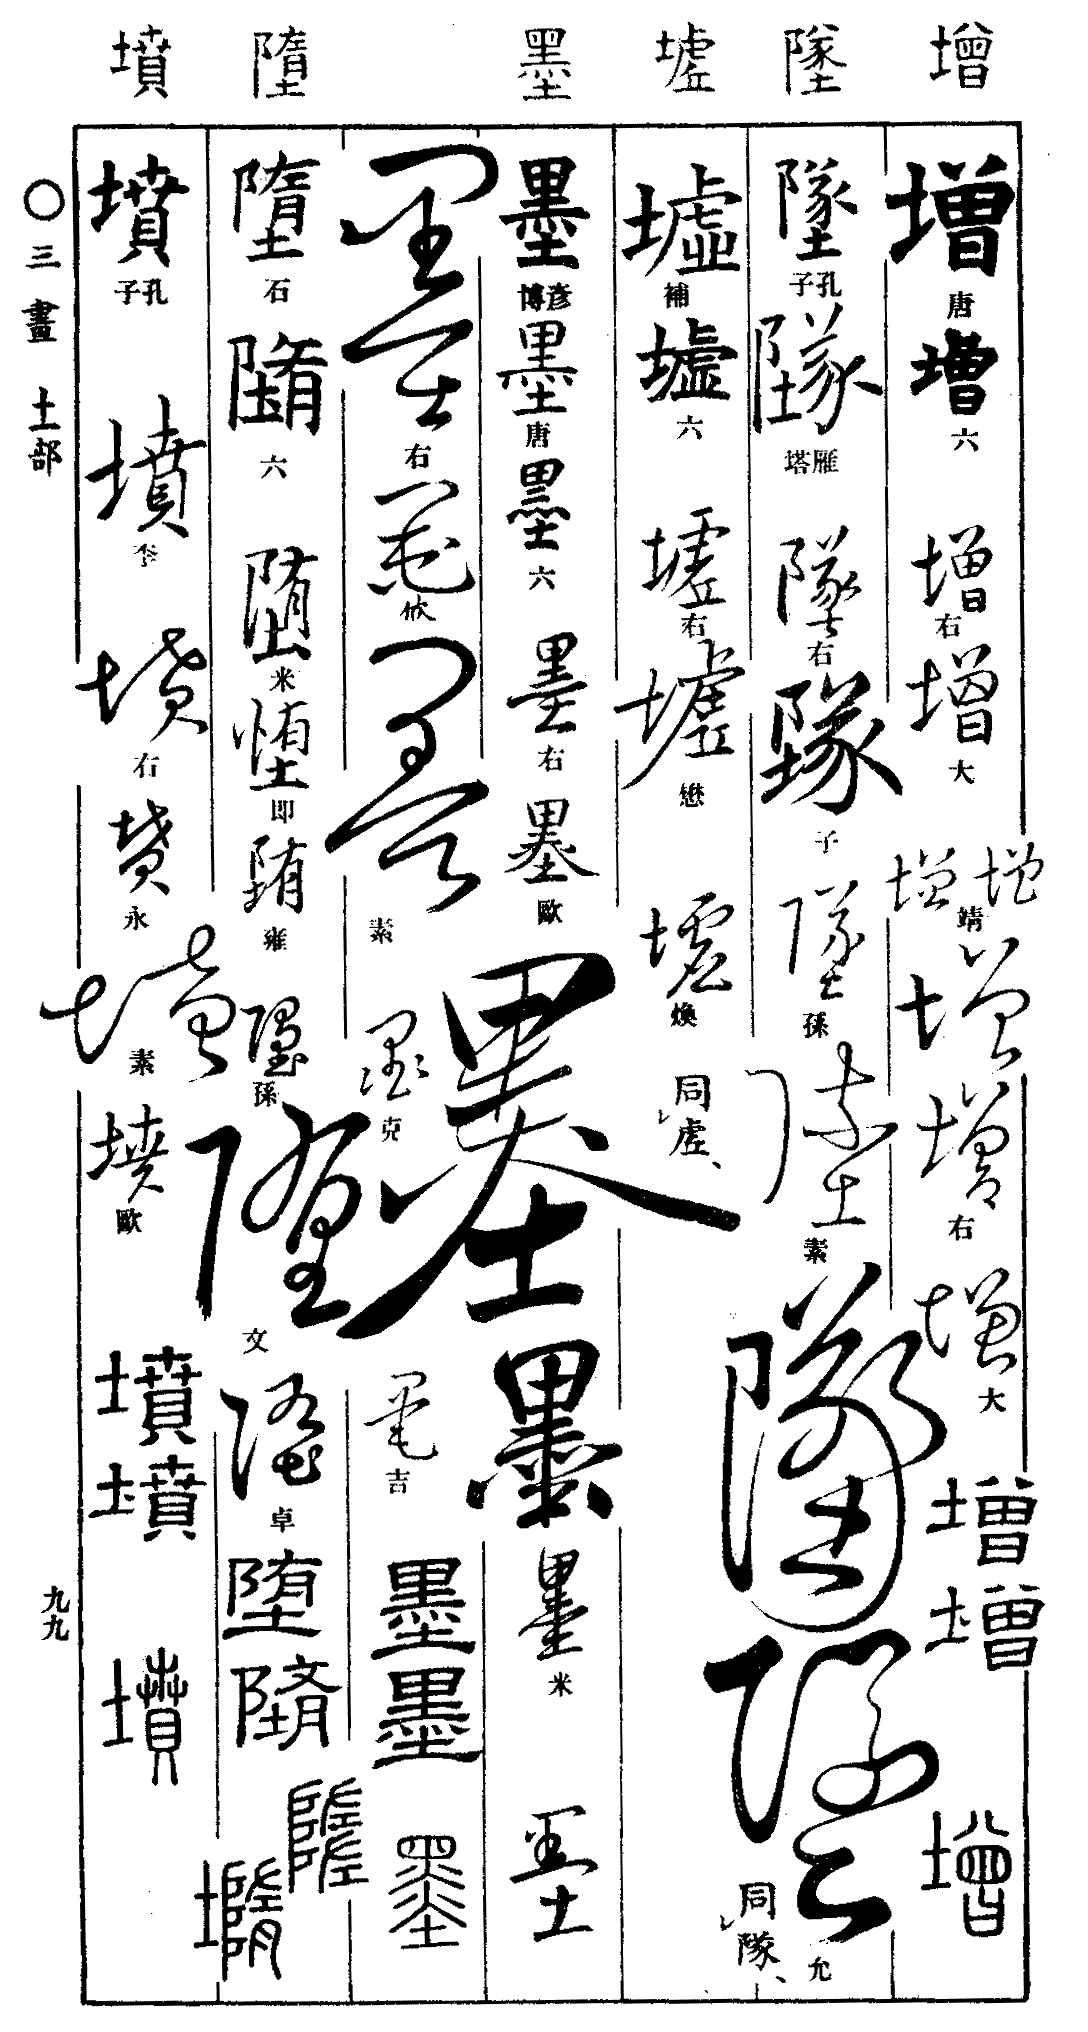 增 墜 墟 墨 墮 墳
增 唐
增 六
增 右
增 大
增 增 靖
增
增 右
增 大
增
增
增
墜 孔子
墜 雁塔
墜 右
墜 子
墜 孫
墜 素
墜
墜 允
同隊、
墟 補
墟 六
墟 右
墟 懋
墟 煥
同虛、
墨 彥博
墨 唐
墨 六
墨 右
墨 歐
墨
墨
墨 米
墨
墨 右
墨
墨 素
墨 克
墨 吉
墨
墨
墨
墮 石
墮 六
墮 米
墮 即
墮 雍
墮 孫
墮 文
墮 卓
墮
墮
墳 孔子
墳 李
墳 右
墳 永
墳 素
墳 歐
墳
墳
墳
〇三畫 土部
九九